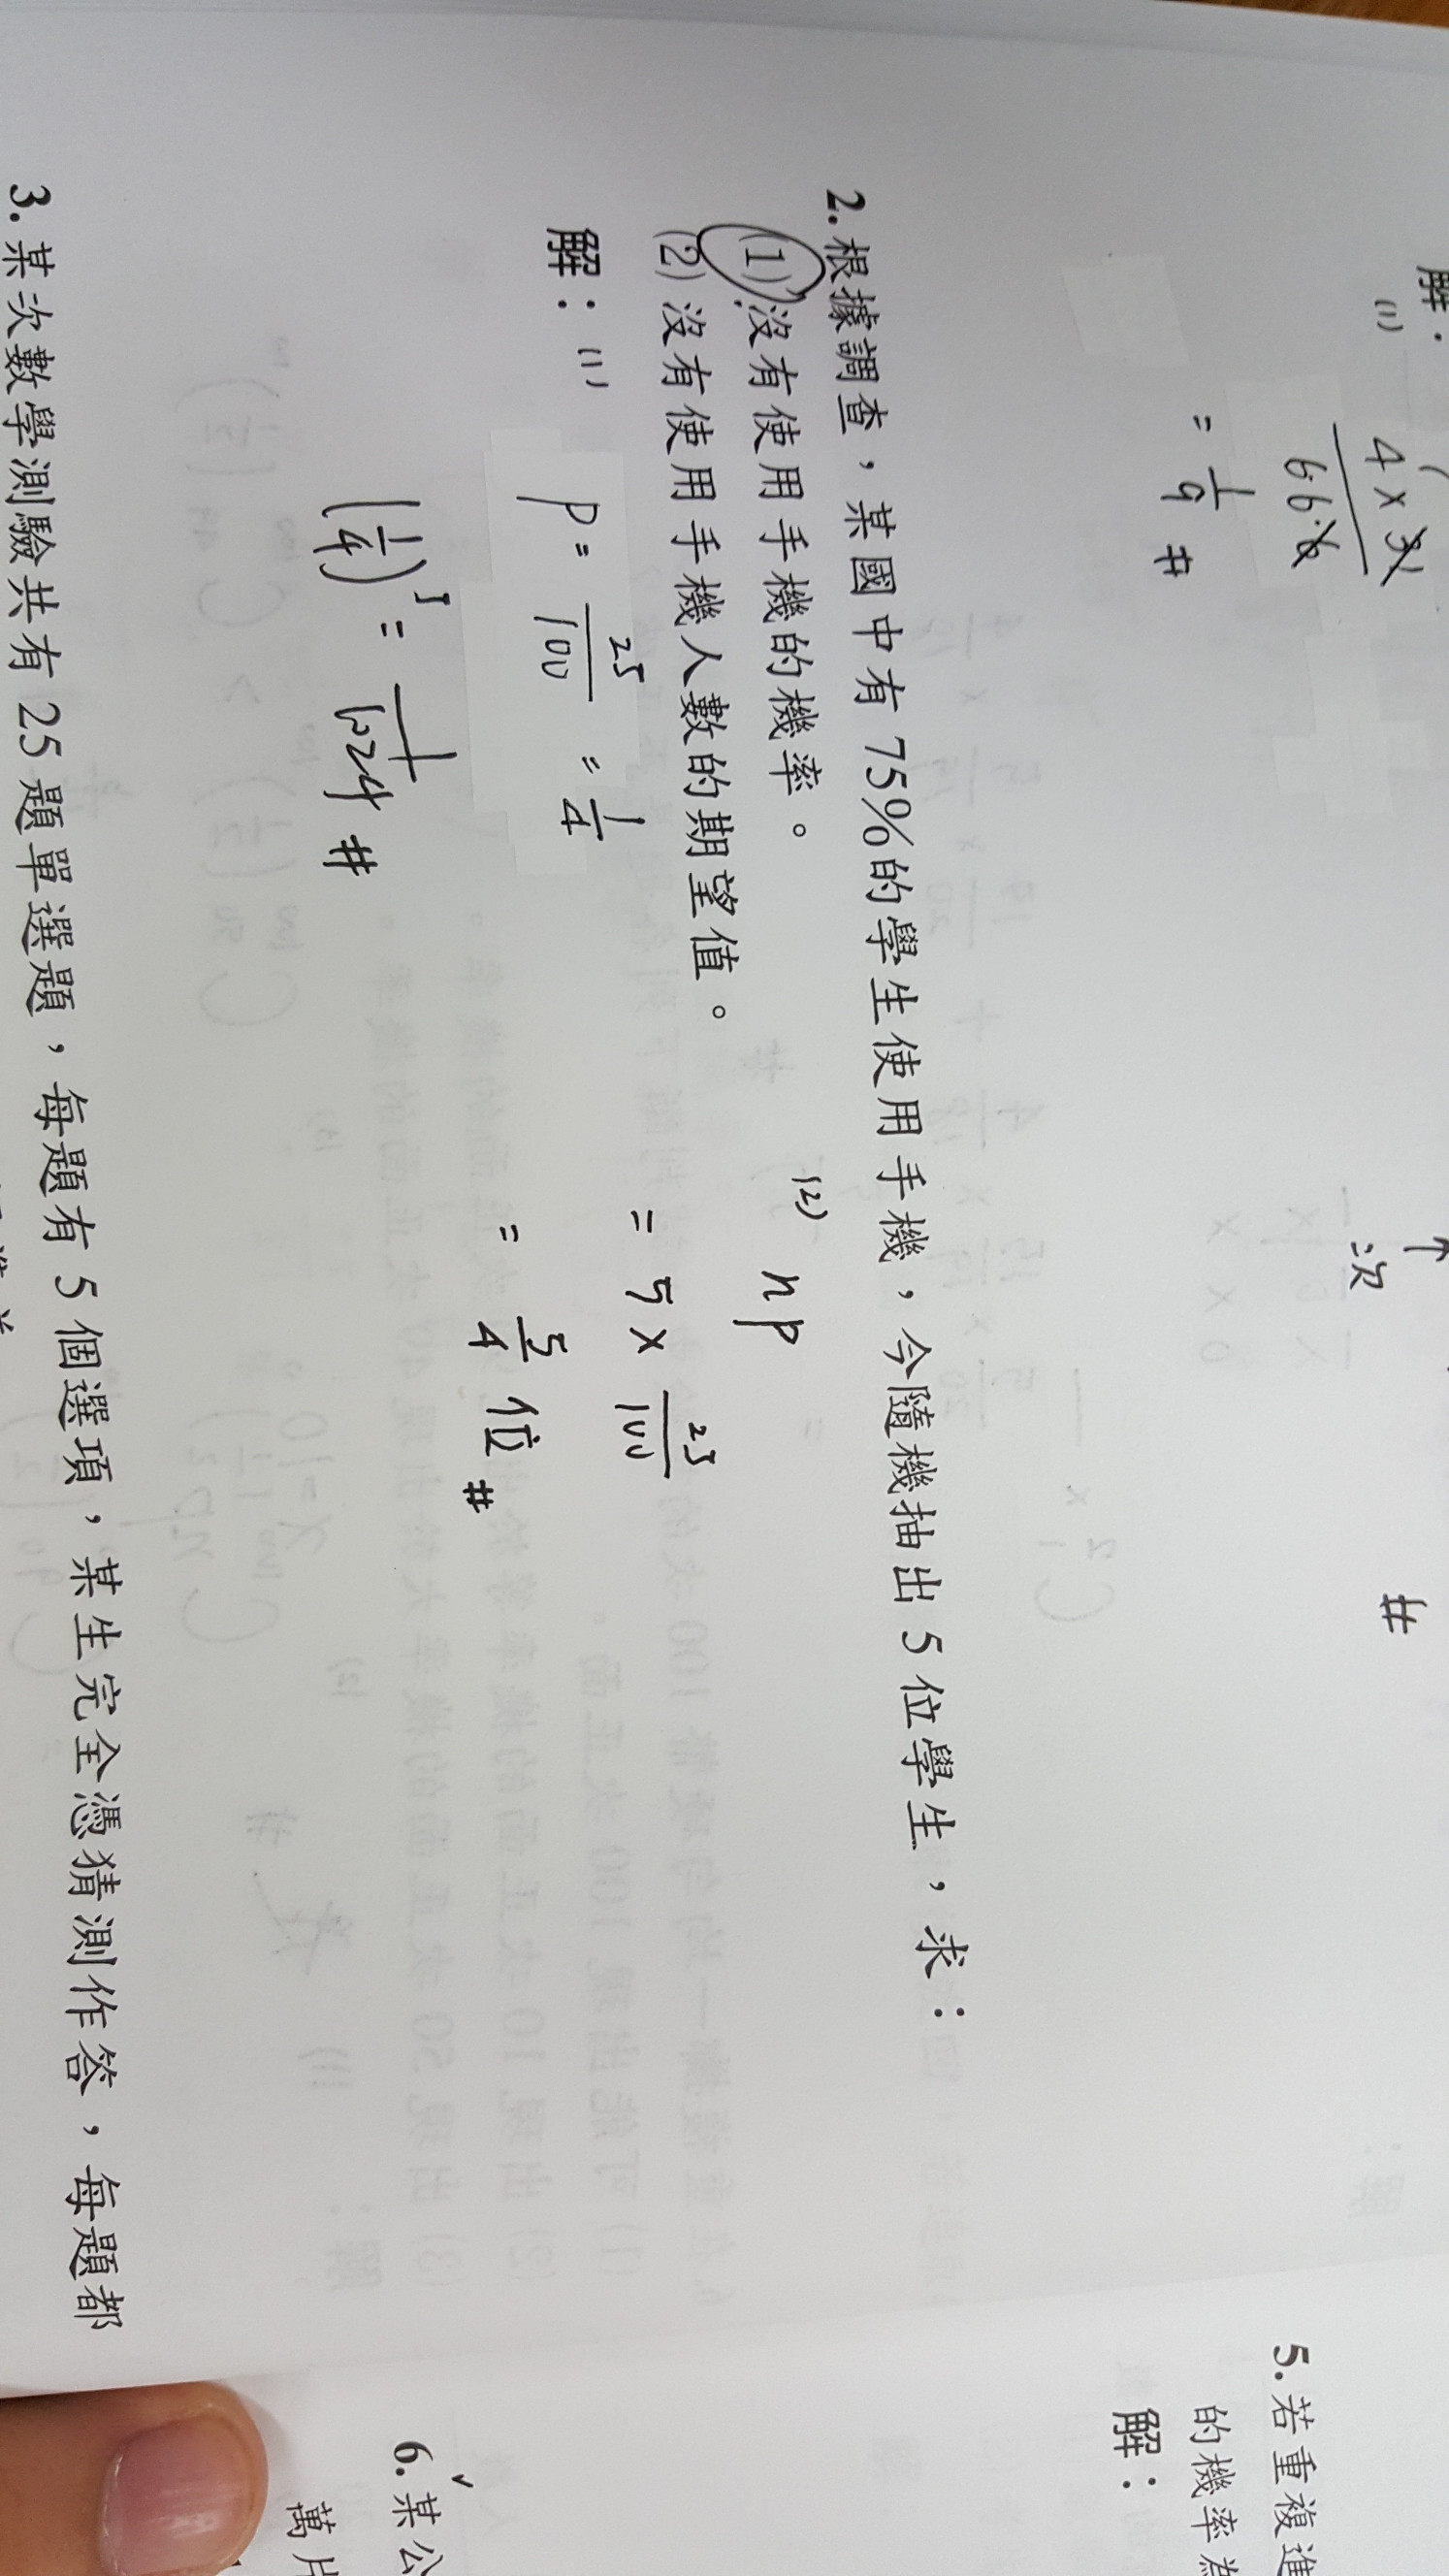 解：
(1) 4×3
6·6·6
= 1/9 #
次
#
2.根據調查，某國中有75%的學生使用手機，今隨機抽出5位學生，求：
(1) 沒有使用手機的機率。
(2) 沒有使用手機人數的期望值。
解：(1) P = 25/100 = 1/4
(1/4)^5 = 1/1024 #
(2) np
= 5 × 25/100
= 5/4 位 #
3.某次數學測驗共有25題單選題，每題有5個選項，某生完全憑猜測作答，每題都
5.若重複進
的機率為
解：
6.某公
萬片